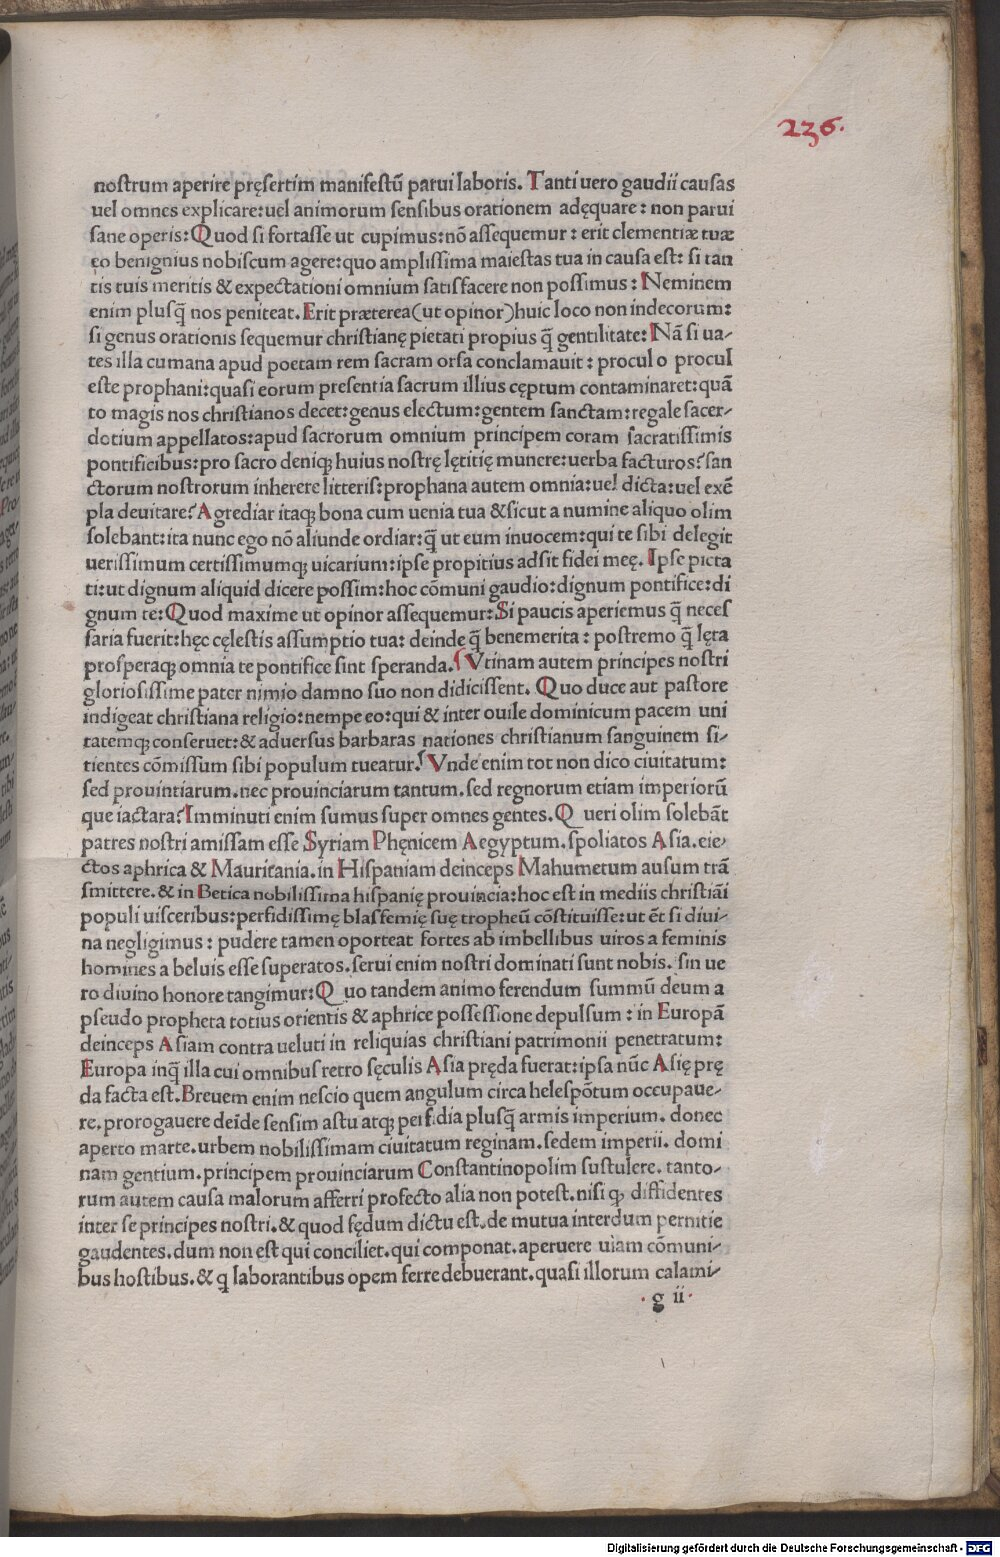 236.
nostrum aperire pręsertim manifestū parui laboris. Tanti uero gaudii causas
uel omnes explicare:uel animorum sensibus orationem adęquare: non parui
sane operis:Quod si fortasse ut cupimus:nō assequemur: erit clementiæ tuæ
eo benignius nobiscum agere:quo amplissima maiestas tua in causa est: si tan
tis tuis meritis & expectationi omnium satisfacere non possimus: Neminem
enim plusq̄ nos peniteat. Erit præterea(ut opinor)huic loco non indecorum:
si genus orationis sequemur christianę pietati propius q̄ gentilitate: Nā si ua-
tes illa cumana apud poetam rem sacram orsa conclamauit: procul o procul
este prophani:quasi eorum presentia sacrum illius cęptum contaminaret:quā
to magis nos christianos decet:genus electum:gentem sanctam:regale sacer-
dotium appellatos:apud sacrorum omnium principem coram sacratissimis
pontificibus:pro sacro deniqꝫ huius nostrę lętitię munere:uerba facturos?san
ctorum nostrorum inherere litteris:prophana autem omnia:uel dicta:uel exē
pla deuitare?Agrediar itaqꝫ bona cum uenia tua & sicut a numine aliquo olim
solebant:ita nunc ego nō aliunde ordiar:q̄ ut eum inuocem:qui te sibi delegit
uerissimum certissimumqꝫ uicarium:ipse propitius adsit fidei meę. Ipse pieta
ti:ut dignum aliquid dicere possim:hoc cōmuni gaudio:dignum pontifice:di
gnum te:Quod maxime ut opinor assequemur:Si paucis aperiemus q̄ neces
saria fuerit:hęc cęlestis assumptio tua: deinde q̄ benemerita: postremo q̄ lęta
prosperaqꝫ omnia te pontifice sint speranda. Vtinam autem principes nostri
gloriosissime pater nimio damno suo non didicissent. Quo duce aut pastore
indigeat christiana religio:nempe eo:qui & inter ouile dominicum pacem uni
tatemqꝫ conseruet:& aduersus barbaras nationes christianum sanguinem si-
tientes cōmissum sibi populum tueatur. Vnde enim tot non dico ciuitatum:
sed prouintiarum.nec prouinciarum tantum.sed regnorum etiam imperiorū
que iactara?Imminuti enim sumus super omnes gentes. Queri olim solebāt
patres nostri amissam esse Syriam Phęnicem Aegyptum.spoliatos Asia.eie-
ctos aphrica & Mauritania.in Hispaniam deinceps Mahumetum ausum trā
smittere.& in Betica nobilissima hispanię prouincia:hoc est in mediis christiāi
populi uisceribus:perfidissimę blasfemię suę tropheū cōstituisse:ut ēt si diui-
na negligimus: pudere tamen oporteat fortes ab imbellibus uiros a feminis
homines a beluis esse superatos.serui enim nostri dominati sunt nobis. sin ue
ro diuino honore tangimur:Quo tandem animo ferendum summū deum a
pseudo propheta totius orientis & aphrice possessione depulsum: in Europā
deinceps Asiam contra ueluti in reliquias christiani patrimonii penetratum:
Europa inq̄ illa cui omnibus retro sęculis Asia pręda fuerat:ipsa nūc Asię prę
da facta est.Breuem enim nescio quem angulum circa helespōtum occupaue-
re.prorogauere deīde sensim astu atqꝫ perfidia plusq̄ armis imperium. donec
aperto marte.urbem nobilissimam ciuitatum reginam.sedem imperii. domi
nam gentium.principem prouinciarum Constantinopolim sustulere. tanto-
rum autem causa malorum afferri profecto alia non potest.nisi ꝙ diffidentes
inter se principes nostri.& quod fędum dictu est.de mutua interdum pernitie
gaudentes.dum non est qui conciliet.qui componat.aperuere uiam cōmuni-
bus hostibus.& q laborantibus opem ferre debuerant.quasi illorum calami-
.g ii.
Digitalisierung gefördert durch die Deutsche Forschungsgemeinschaft - DFG